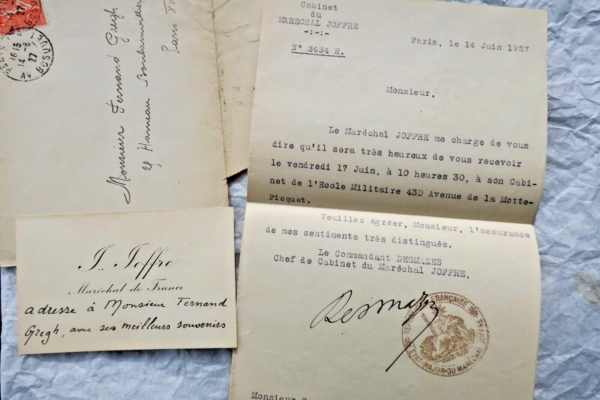 Monsieur Fernand Gregh
Hameau Boulainvilliers
Paris
J. Joffre
Maréchal de France
adresse à Monsieur Fernand
Gregh, avec ses meilleurs souvenirs
Cabinet
du
MARECHAL JOFFRE
-:-:-
N° 3634 H.
Paris, le 14 Juin 1927
Monsieur,
Le Maréchal JOFFRE me charge de vous
dire qu'il sera très heureux de vous recevoir
le vendredi 17 Juin, à 10 heures 30, à son Cabi-
net de l'Ecole Militaire 43D Avenue de la Motte-
Picquet.
Veuillez agréer, Monsieur, l'assurance
de mes sentiments très distingués.
Le Commandant DESMAZES
Chef de Cabinet du Maréchal JOFFRE,
Desmazes
FRANÇAISE
MAJOR DU MARÉCHAL
Monsieur